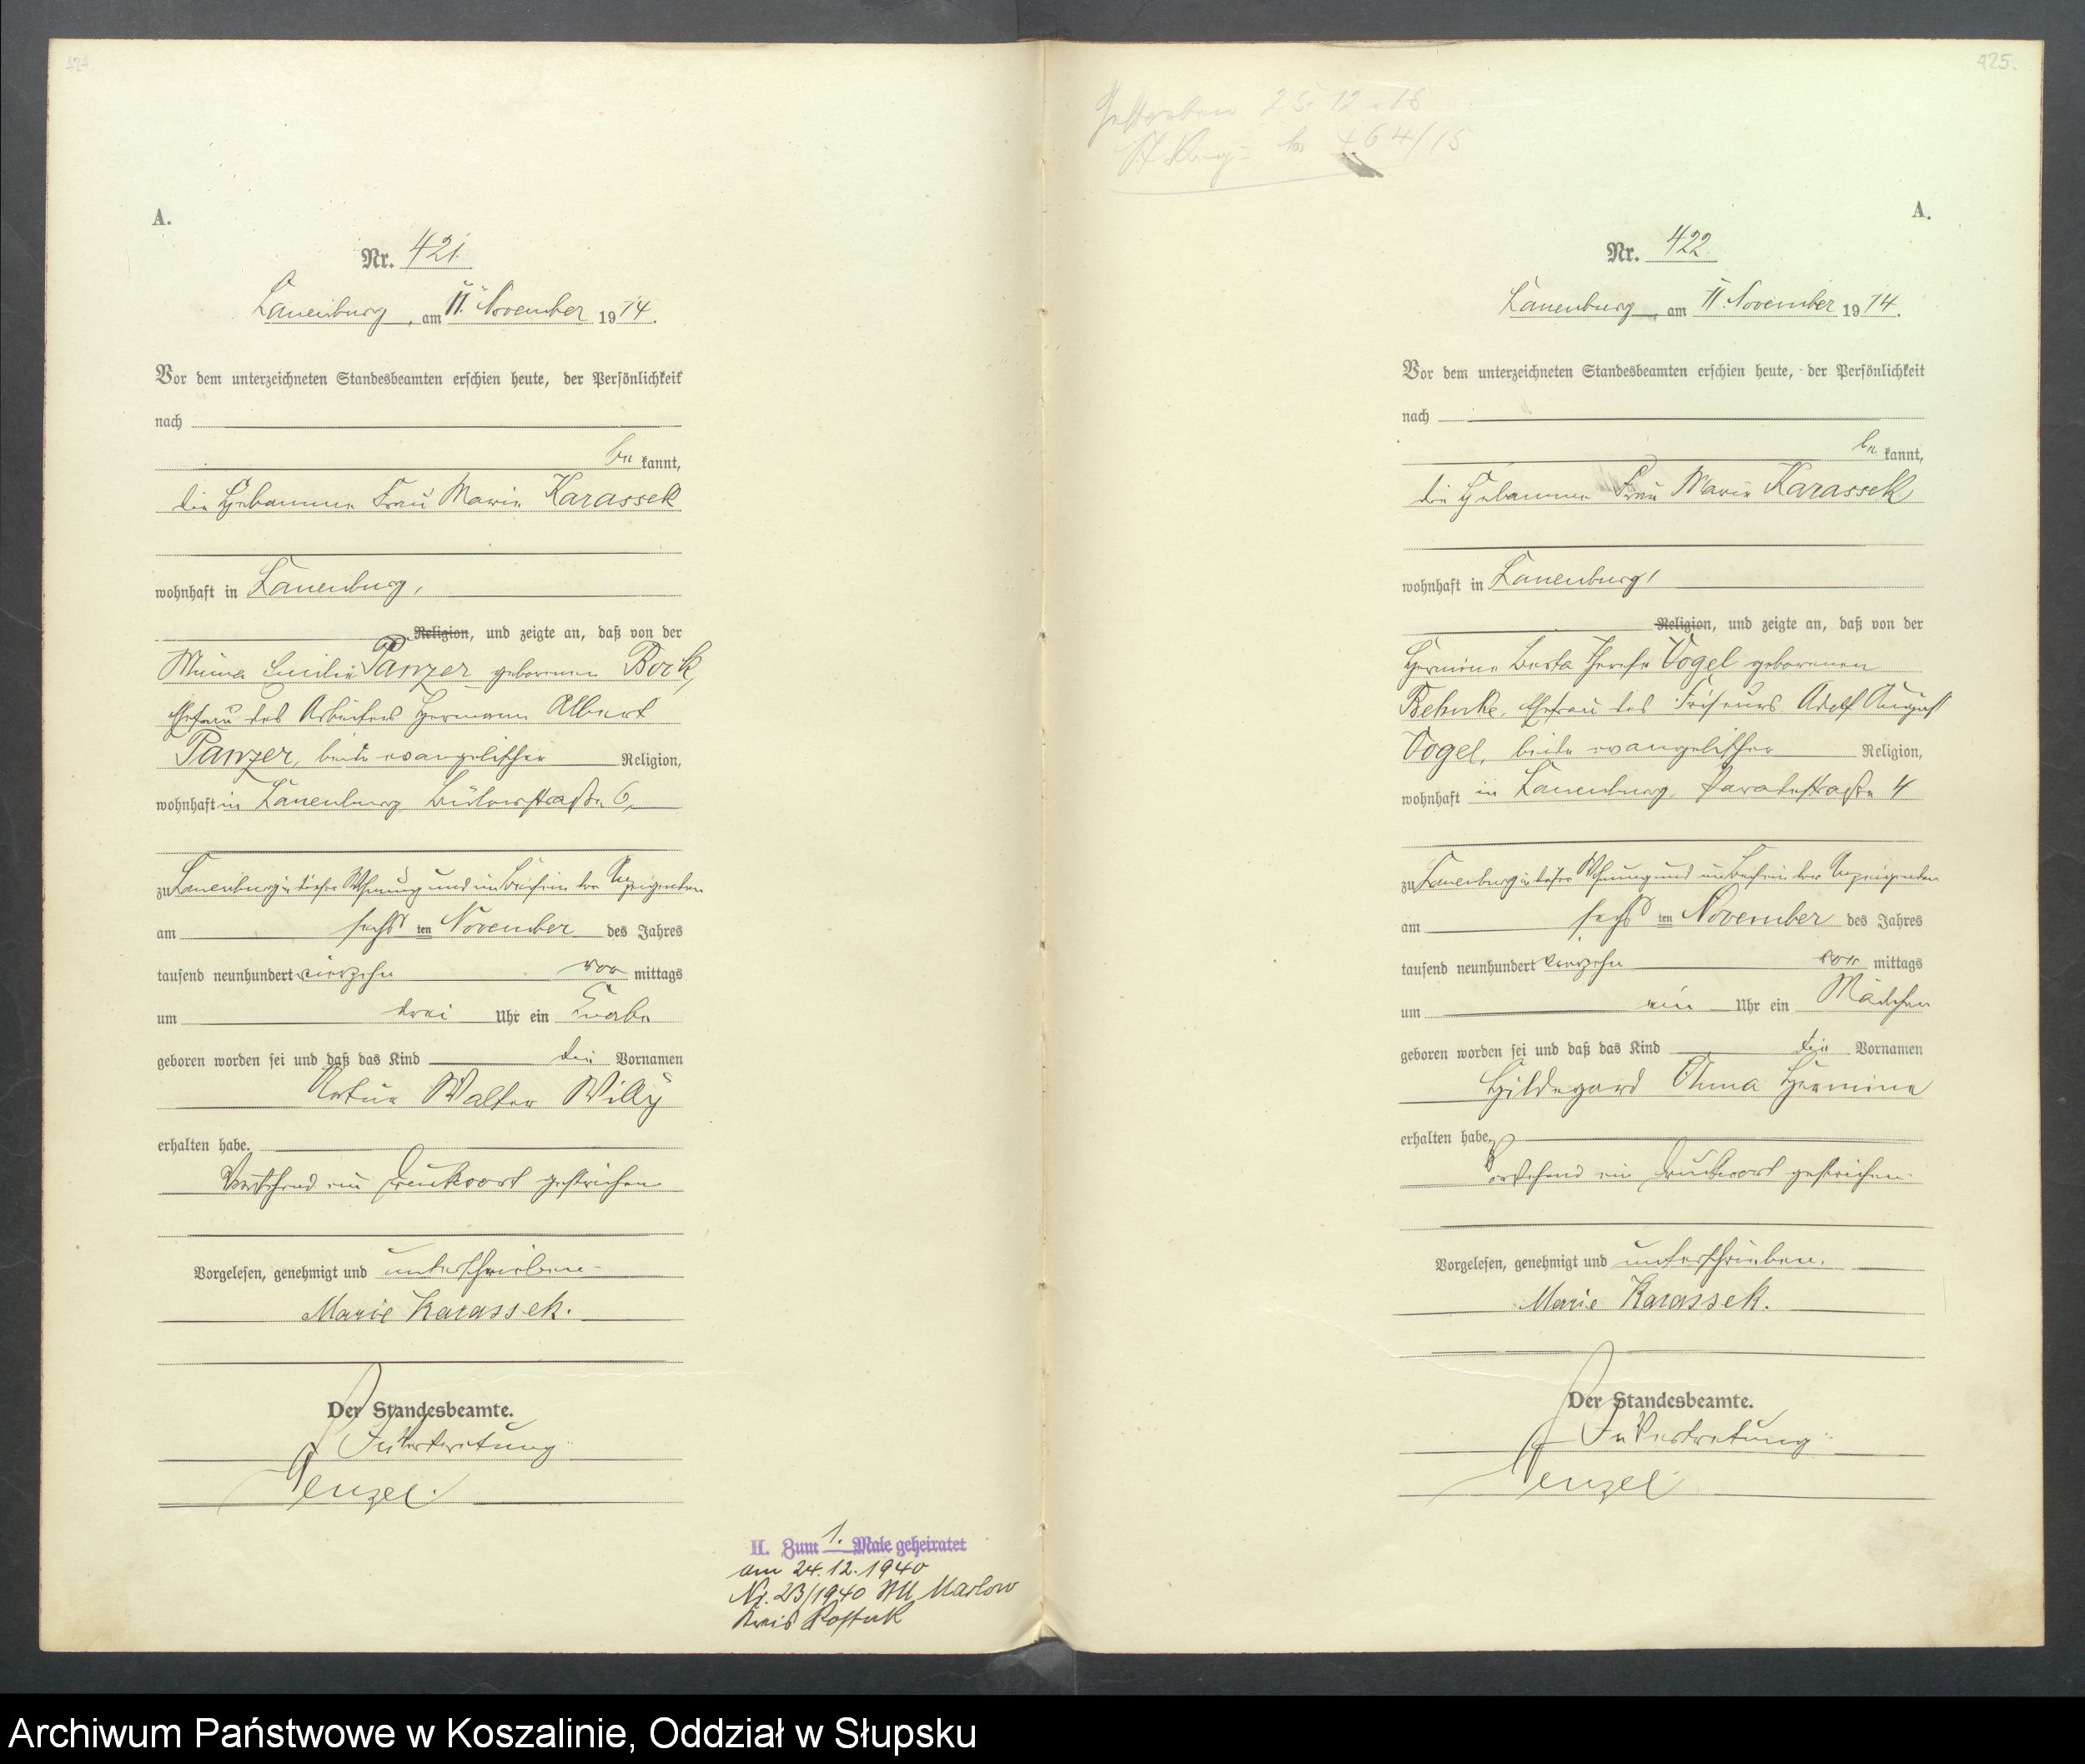 424
A.
Nr. 421.
Lauenburg, am 11. November 1914.
Vor dem unterzeichneten Standesbeamten erschien heute, der Persönlichkeit
nach
be kannt,
die Hebamme Frau Marie Karassek
wohnhaft in Lauenburg,
Religion, und zeigte an, daß von der
Emilie Panzer geborenen Bork,
Ehefrau des Arbeiters Hermann Albert
Panzer, beide evangelischer Religion,
wohnhaft in Lauenburg Bülowstraße 6,
zu Lauenburg in dieser Wohnung und im Beisein der Anzeigenden
am sechs ten November des Jahres
tausend neunhundert vierzehn vor mittags
um drei Uhr ein Knabe
geboren worden sei und daß das Kind die Vornamen
Artur Walter Willy
erhalten habe.
Vorstehend ein Druckwort gestrichen.
Vorgelesen, genehmigt und unterschrieben.
Marie Karassek.
Der Standesbeamte.
In Vertretung:
Wenzel.
II. Zum 1. Male geheiratet
am 24.12.1940
Nr. 23/1940 StA Marlow
Kreis Rostock
425.
Gestorben 25.12.15
St. Reg. No 464/15
A.
Nr. 422.
Lauenburg, am 11. November 1914.
Vor dem unterzeichneten Standesbeamten erschien heute, der Persönlichkeit
nach
be kannt,
die Hebamme Frau Marie Karassek
wohnhaft in Lauenburg,
Religion, und zeigte an, daß von der
Hermine Berta Therese Vogel geborenen
Behnke, Ehefrau des Friseurs Adolf August
Vogel, beide evangelischer Religion,
wohnhaft in Lauenburg, Paradestraße 4
zu Lauenburg in dieser Wohnung und im Beisein der Anzeigenden
am sechs ten November des Jahres
tausend neunhundert vierzehn vor mittags
um ein Uhr ein Mädchen
geboren worden sei und daß das Kind die Vornamen
Hildegard Anna Hermine
erhalten habe.
Vorstehend ein Druckwort gestrichen.
Vorgelesen, genehmigt und unterschrieben.
Marie Karassek.
Der Standesbeamte.
In Vertretung:
Wenzel
Archiwum Państwowe w Koszalinie, Oddział w Słupsku